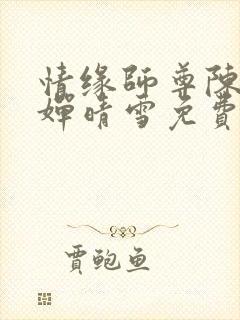 情缘師尊陳
嬋晴雪免費
賈鮑魚